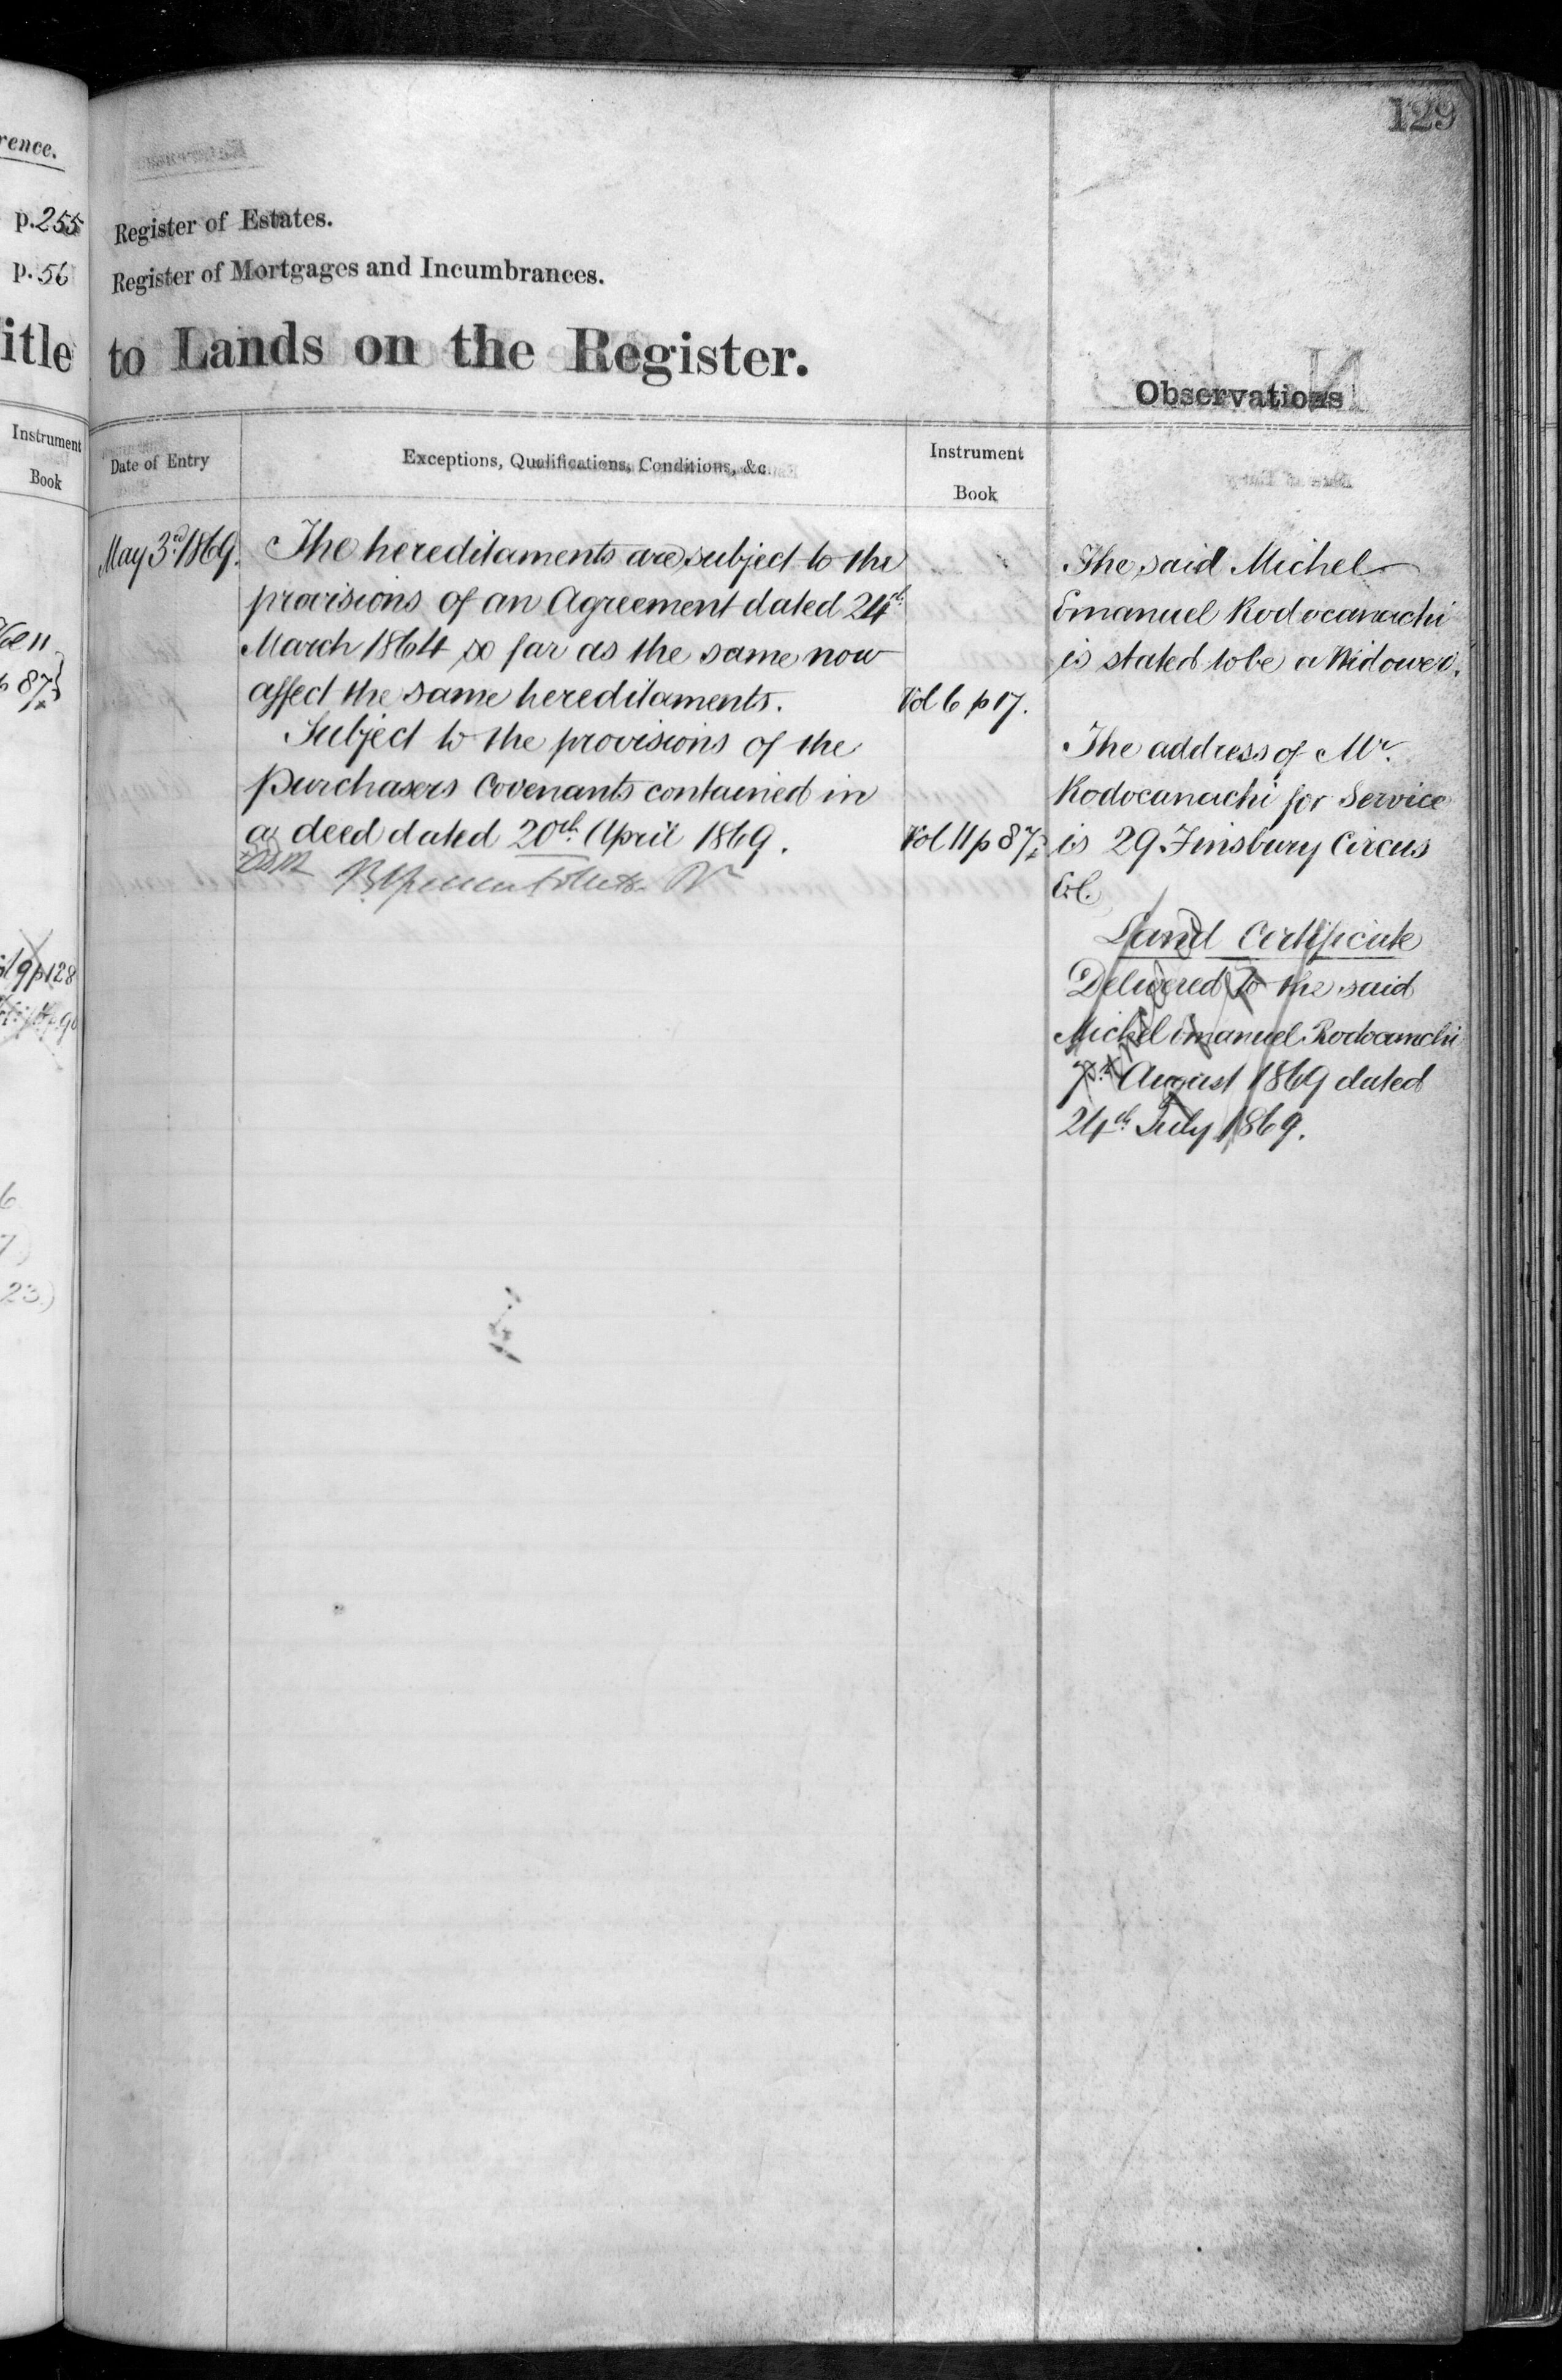 rence.
p.255
p.56
itle
Instrument
Book
p 87
p128
23.)
129
Register of Estates.
Register of Mortgages and Incumbrances.
to Lands on the Register.
Observations
Date of Entry
Exceptions, Qualifications, Conditions, &c
Instrument
Book
May 3rd 1869. The hereditaments are subject to the
provisions of an Agreement dated 24th
March 1864 so far as the same now
affect the same hereditaments. Vol 6 p 17.
Subject to the provisions of the
purchasers Covenants contained in
a deed dated 20th April 1869. Vol 11 p 87
The said Michel
Emanuel Rodocanachi
is stated to be a Widower.
The address of Mr.
Rodocanachi for Service
is 29 Finsbury Circus
E.C.
Land Certificate
Delivered to the said
Michel Emanuel Rodocanachi
August 1869 dated
24th July 1869.